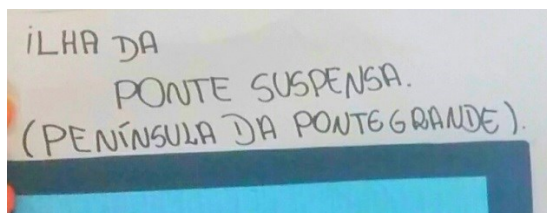 iLHA DA
PONTE SUSPENSA.
(PENÍNSULA DA PONTEGRANDE).